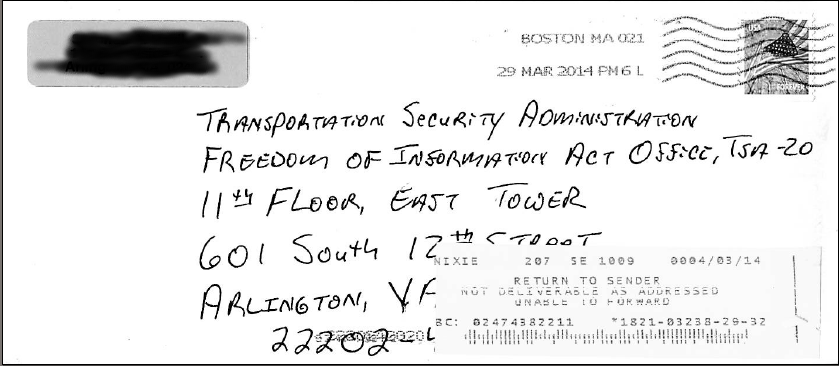 BOSTON MA 021
29 MAR 2014 PM 6 L
USA
FOREVER
TRANSPORTATION SECURITY ADMINISTRATION
FREEDOM OF INFORMATION ACT OFFICE, TSA-20
11th FLOOR, EAST TOWER
601 South 12th STREET
ARLINGTON, VA
22202-4
NIXIE 207 SE 1009 0004/03/14
RETURN TO SENDER
NOT DELIVERABLE AS ADDRESSED
UNABLE TO FORWARD
BC: 02474382211 *1821-03238-29-32